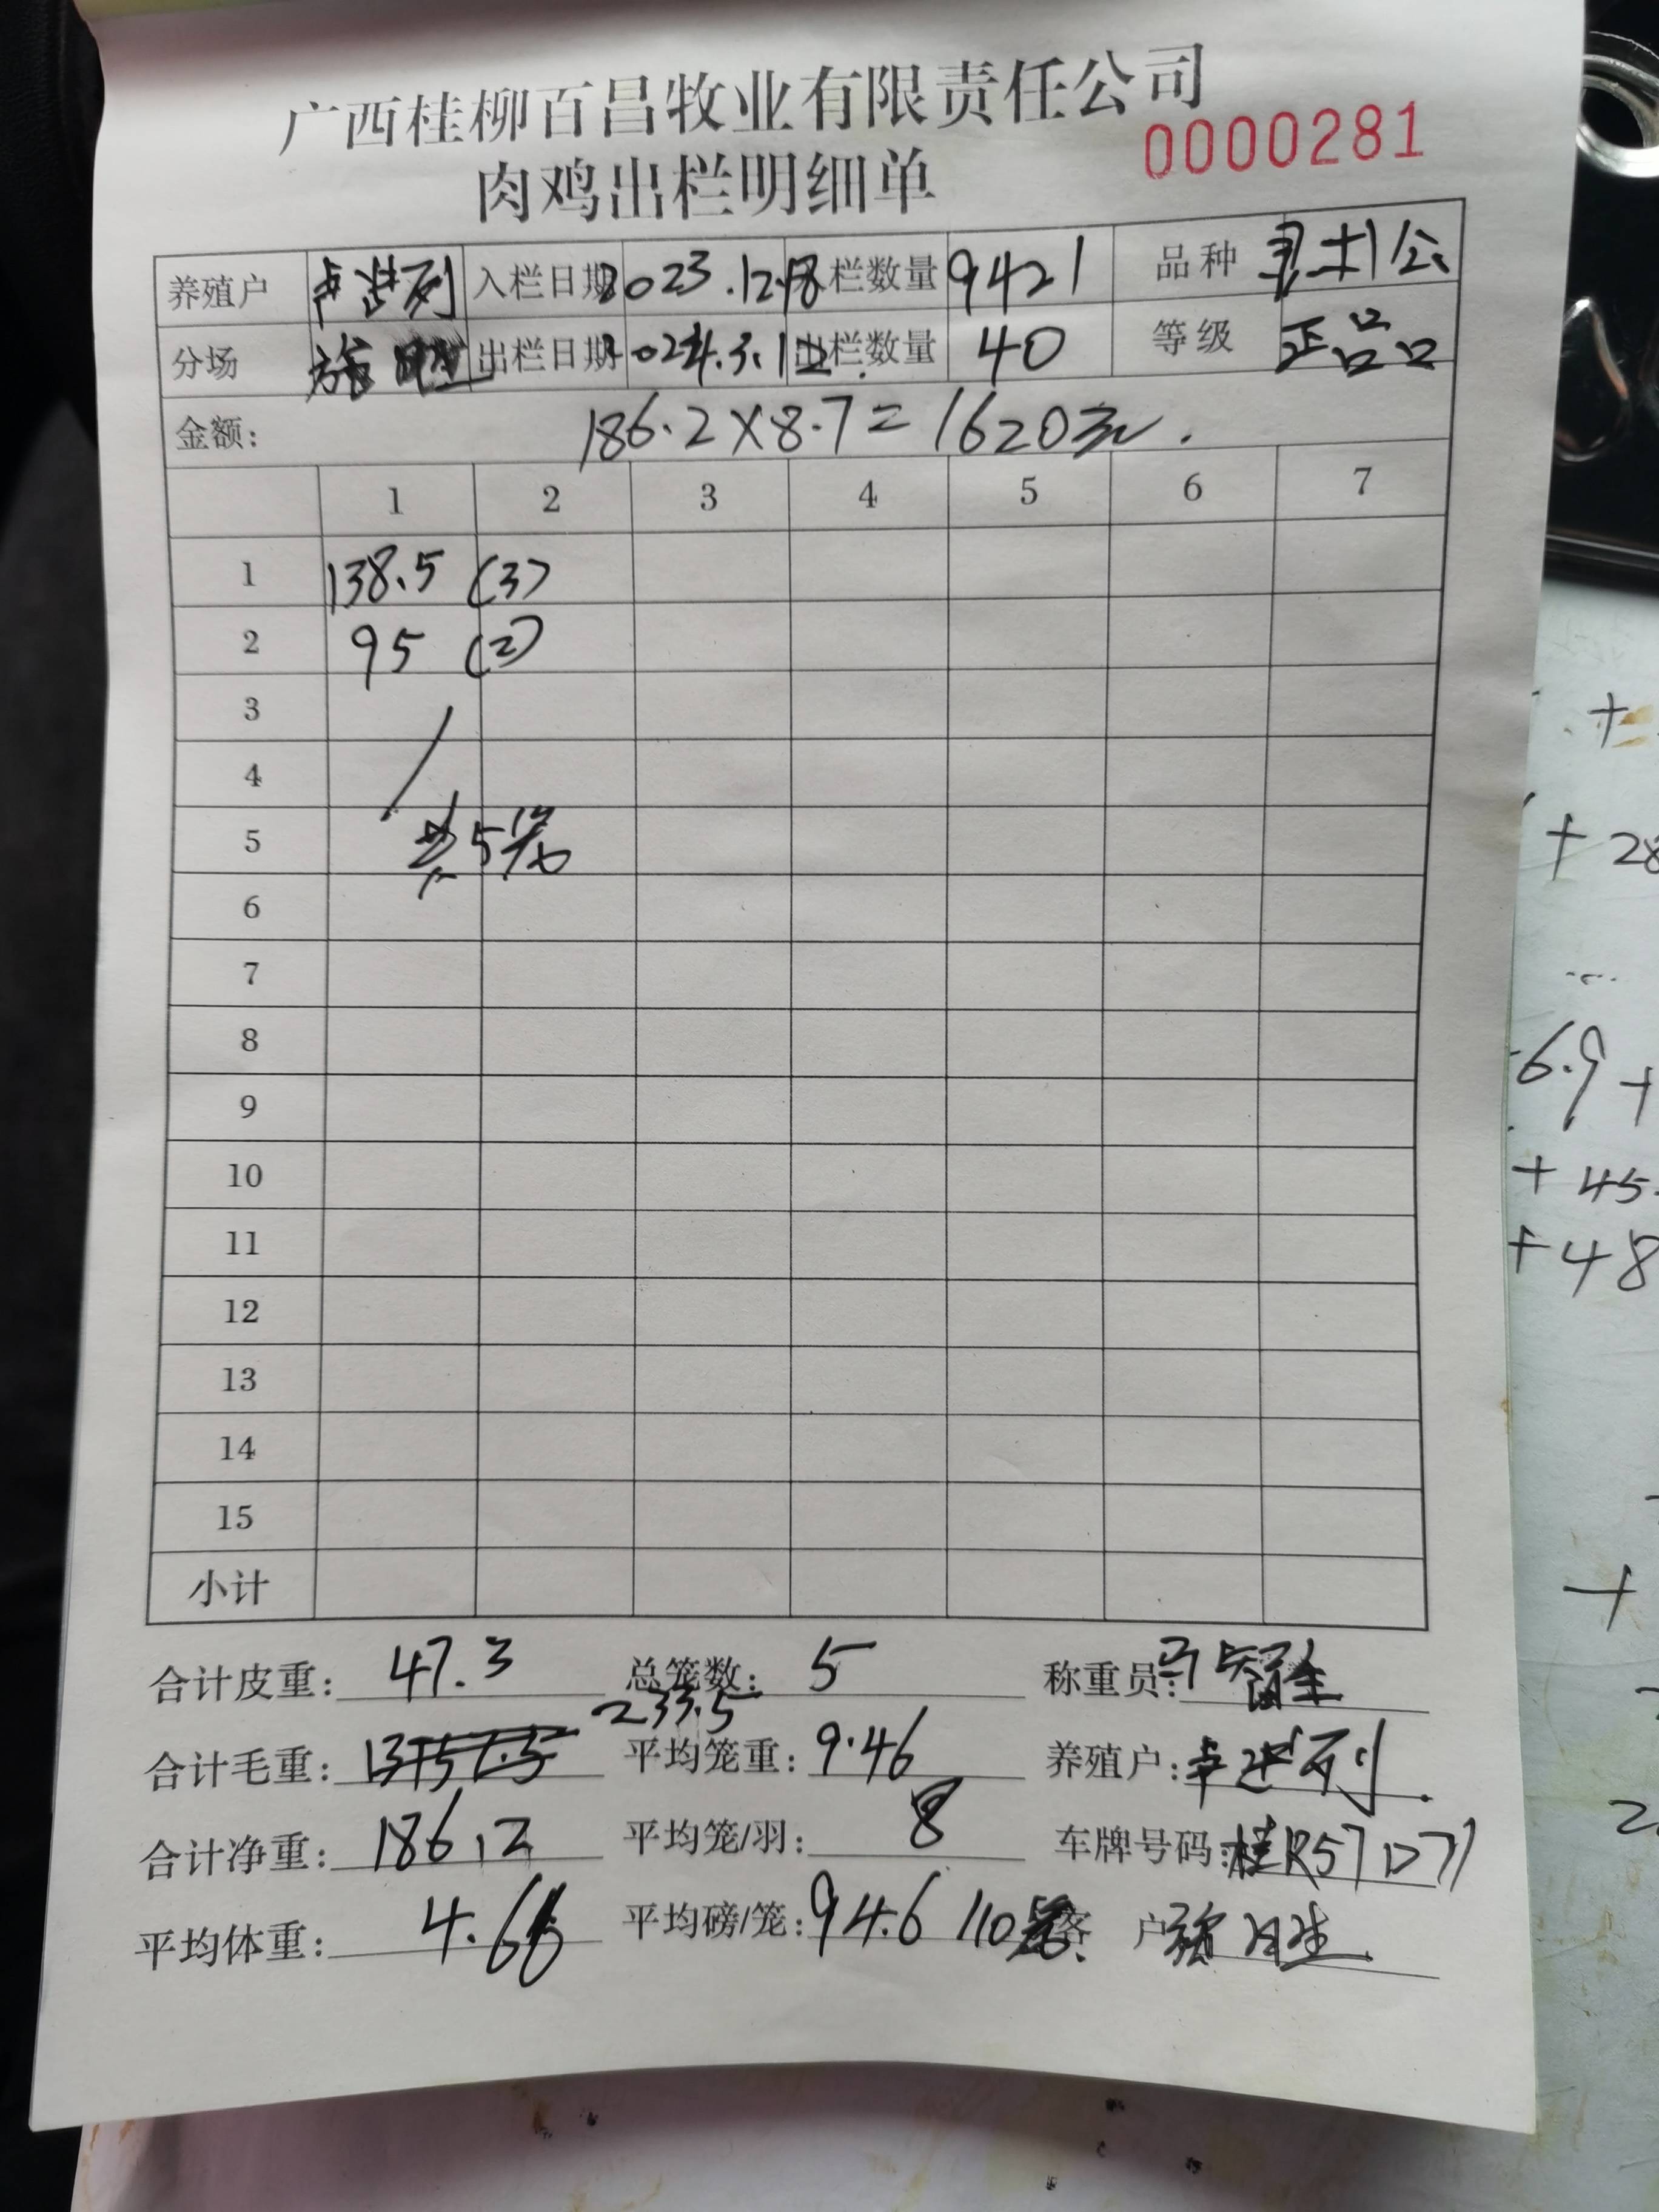 广西桂柳百昌牧业有限责任公司
0000281
肉鸡出栏明细单
养殖户 入栏日期 2023.12.18 栏数量 9421 品种 土公
分场 出栏日期 2024.3.12 出栏数量 40 等级 正品
金额: 186.2×8.7=1620元.
1 2 3 4 5 6 7
1 138.5 (3)
2 95 (2)
3
4
5 共5笼
6
7
8
9
10
11
12
13
14
15
小计
合计皮重: 47.3 总笼数: 5 称重员:
233.5
合计毛重: 平均笼重: 9.46 养殖户:
合计净重: 186.2 平均笼/羽: 8 车牌号码: 桂R57D71
平均体重: 4.66 平均磅/笼: 94.6 110 客户
+
+ 28
6.9 +
+ 45.
+ 48
+
2